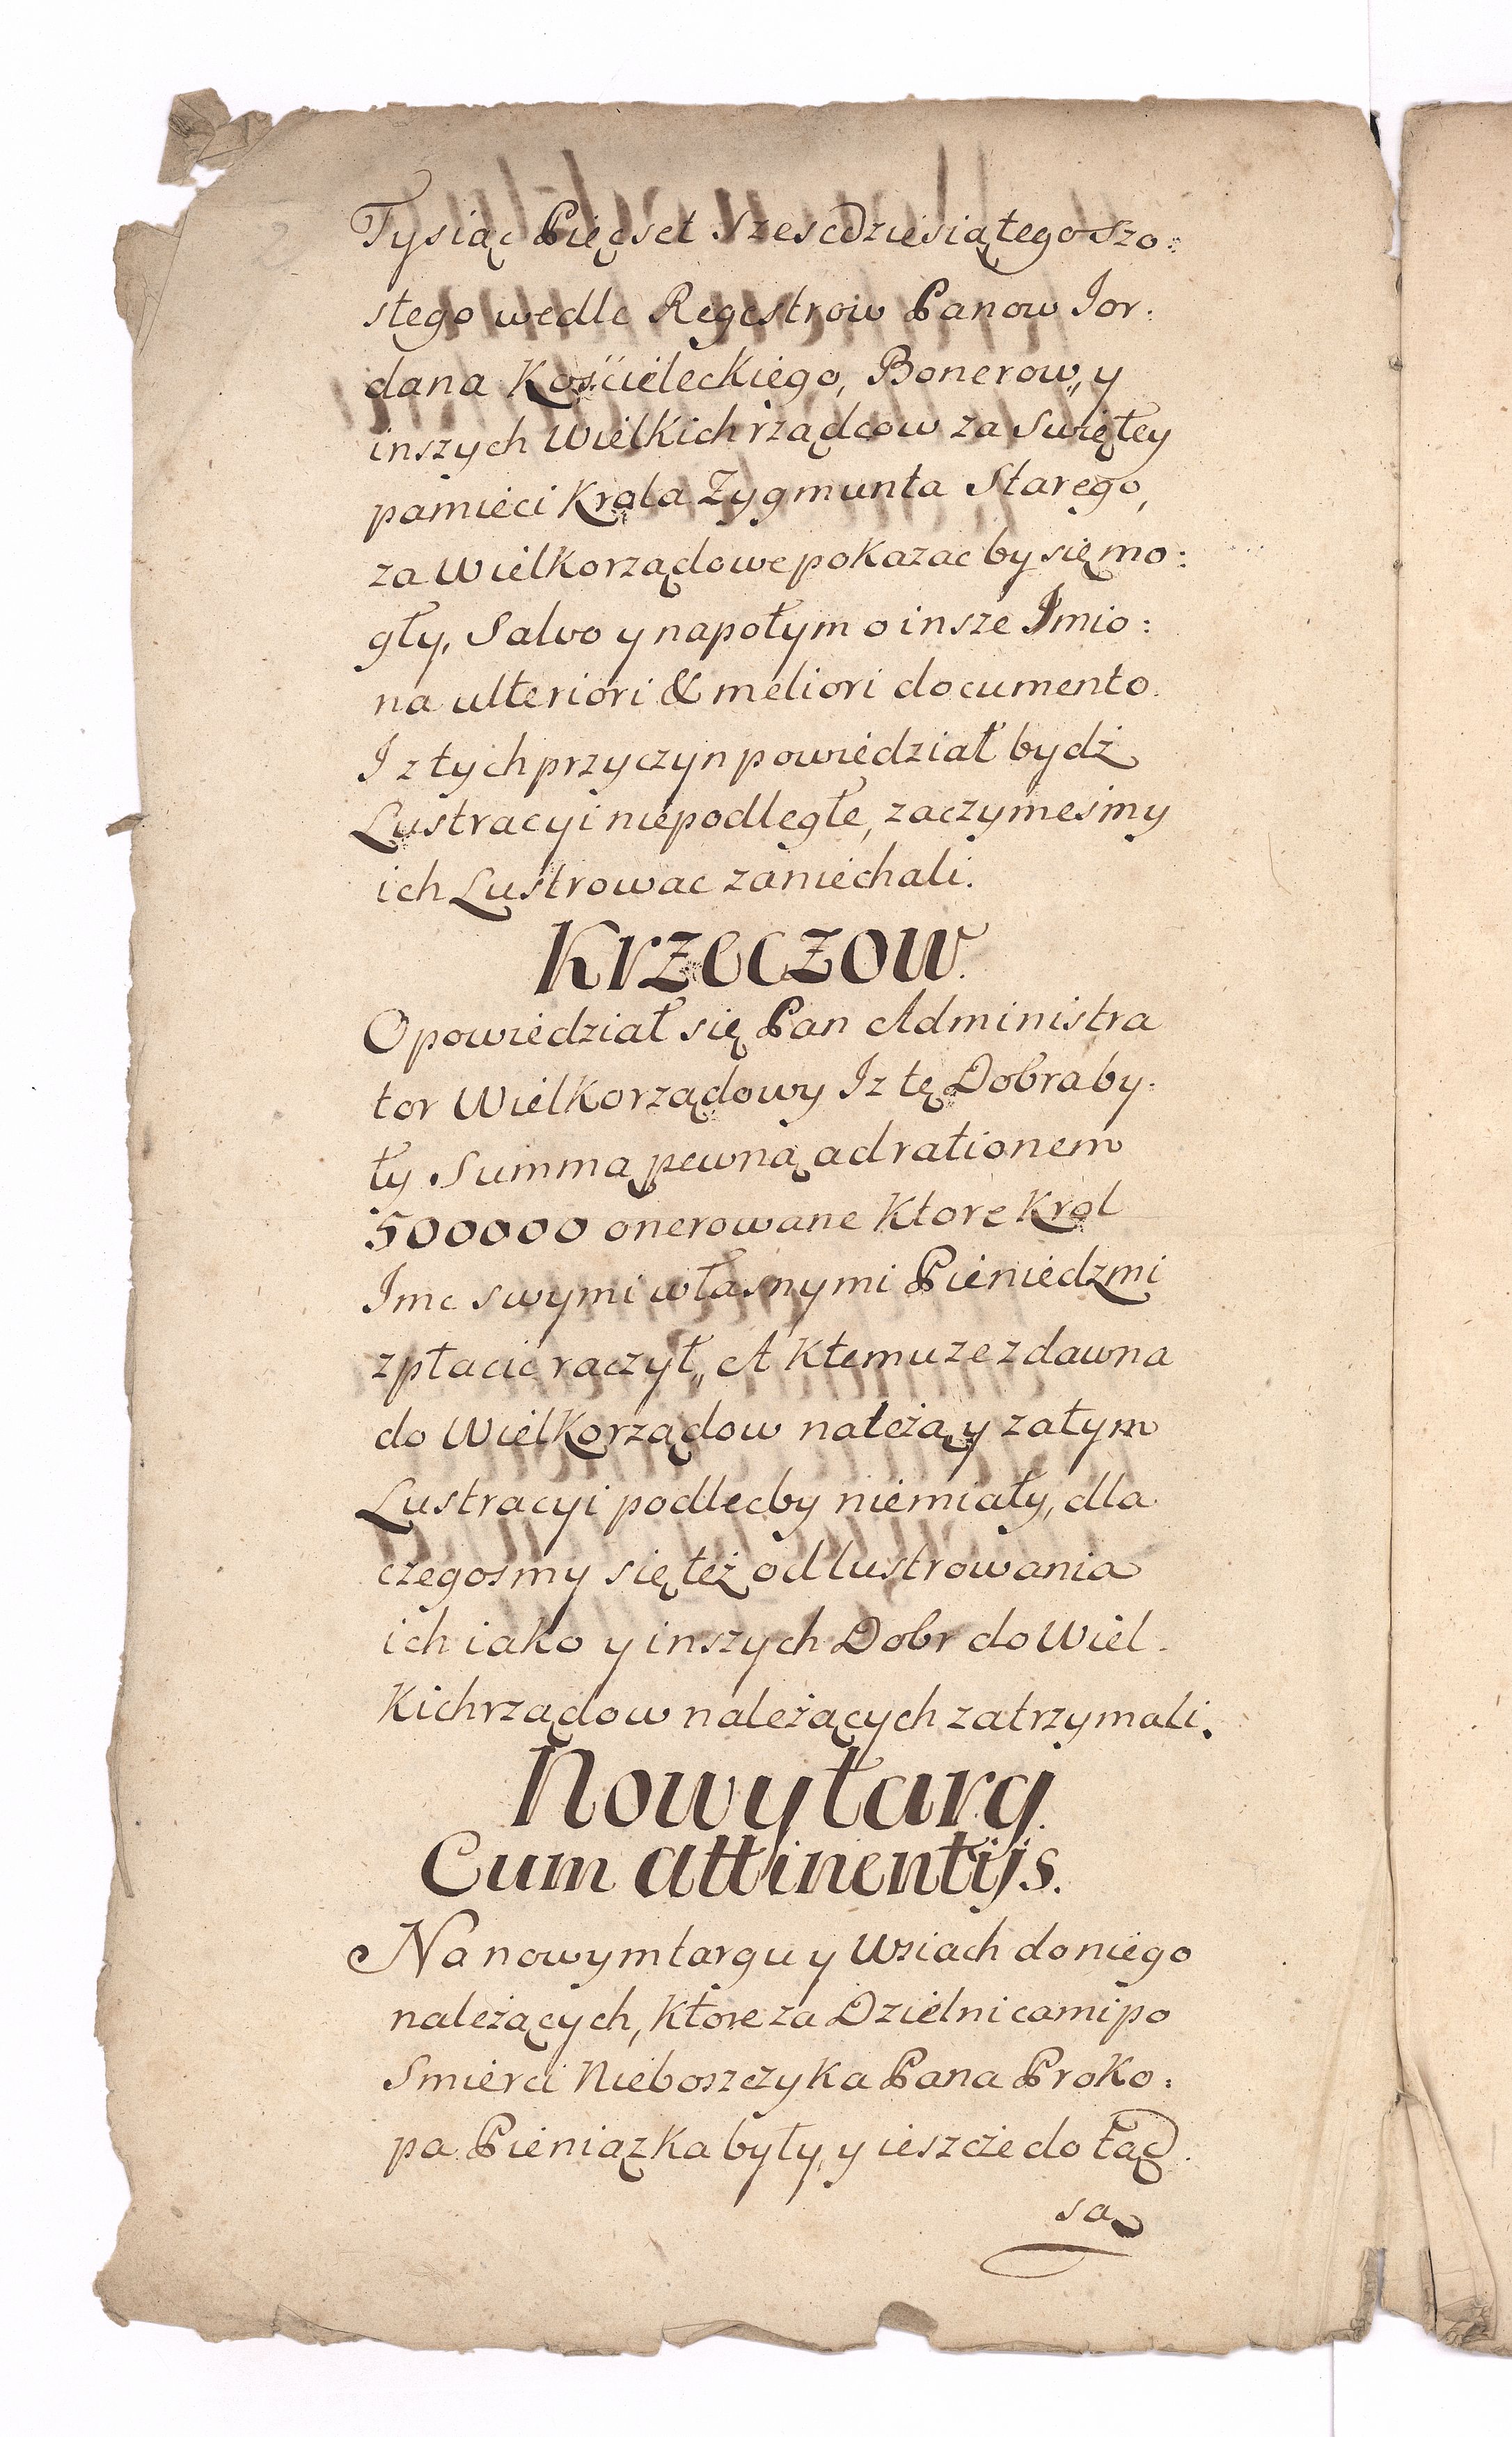 Tysiąc Pięcset Szescdziesiątego Szo:
stego wedle Regestrow Panow Ior:
dana Kościeleckiego, Bonerow,, y
inszych Wielkich rządcow za Swiętey
pamieci Krola Zygmunta Starego,
za Wielkorządowe pokazac by się mo:
gły, Salvo y napotym o insze Imio:
na ulteriori & meliori documento.
I z tych przyczyn powiedział bydź
Lustracyi niepodległe, zaczymesmy
ich Lustrowac zaniechali.
Krzeczow.
Opowiedział się Pan Administra
tor Wielkorządowy Iz tę Dobra by:
ły Summą pewną ad rationem
500000 onerowane Ktore Krol
Imc swymi własnymi Pieniedzmi
zpłacic raczył,, A Ktemu ze zdawna
do Wielkorządow należą y zatym
Lustracyi podlecby niemiały, dla
czegosmy się też od lustrowania
ich iako y inszych Dobr do Wiel.
Kichrządow należących zatrzymali.
Nowytarg
Cum attinentijs.
Na nowymtargu y Wsiach do niego
należących, Ktore za Dzielnicami po
Smierci Nieboszczyka Pana Proko:
pa Pieniązka były, y ieszcże do tąd.
są